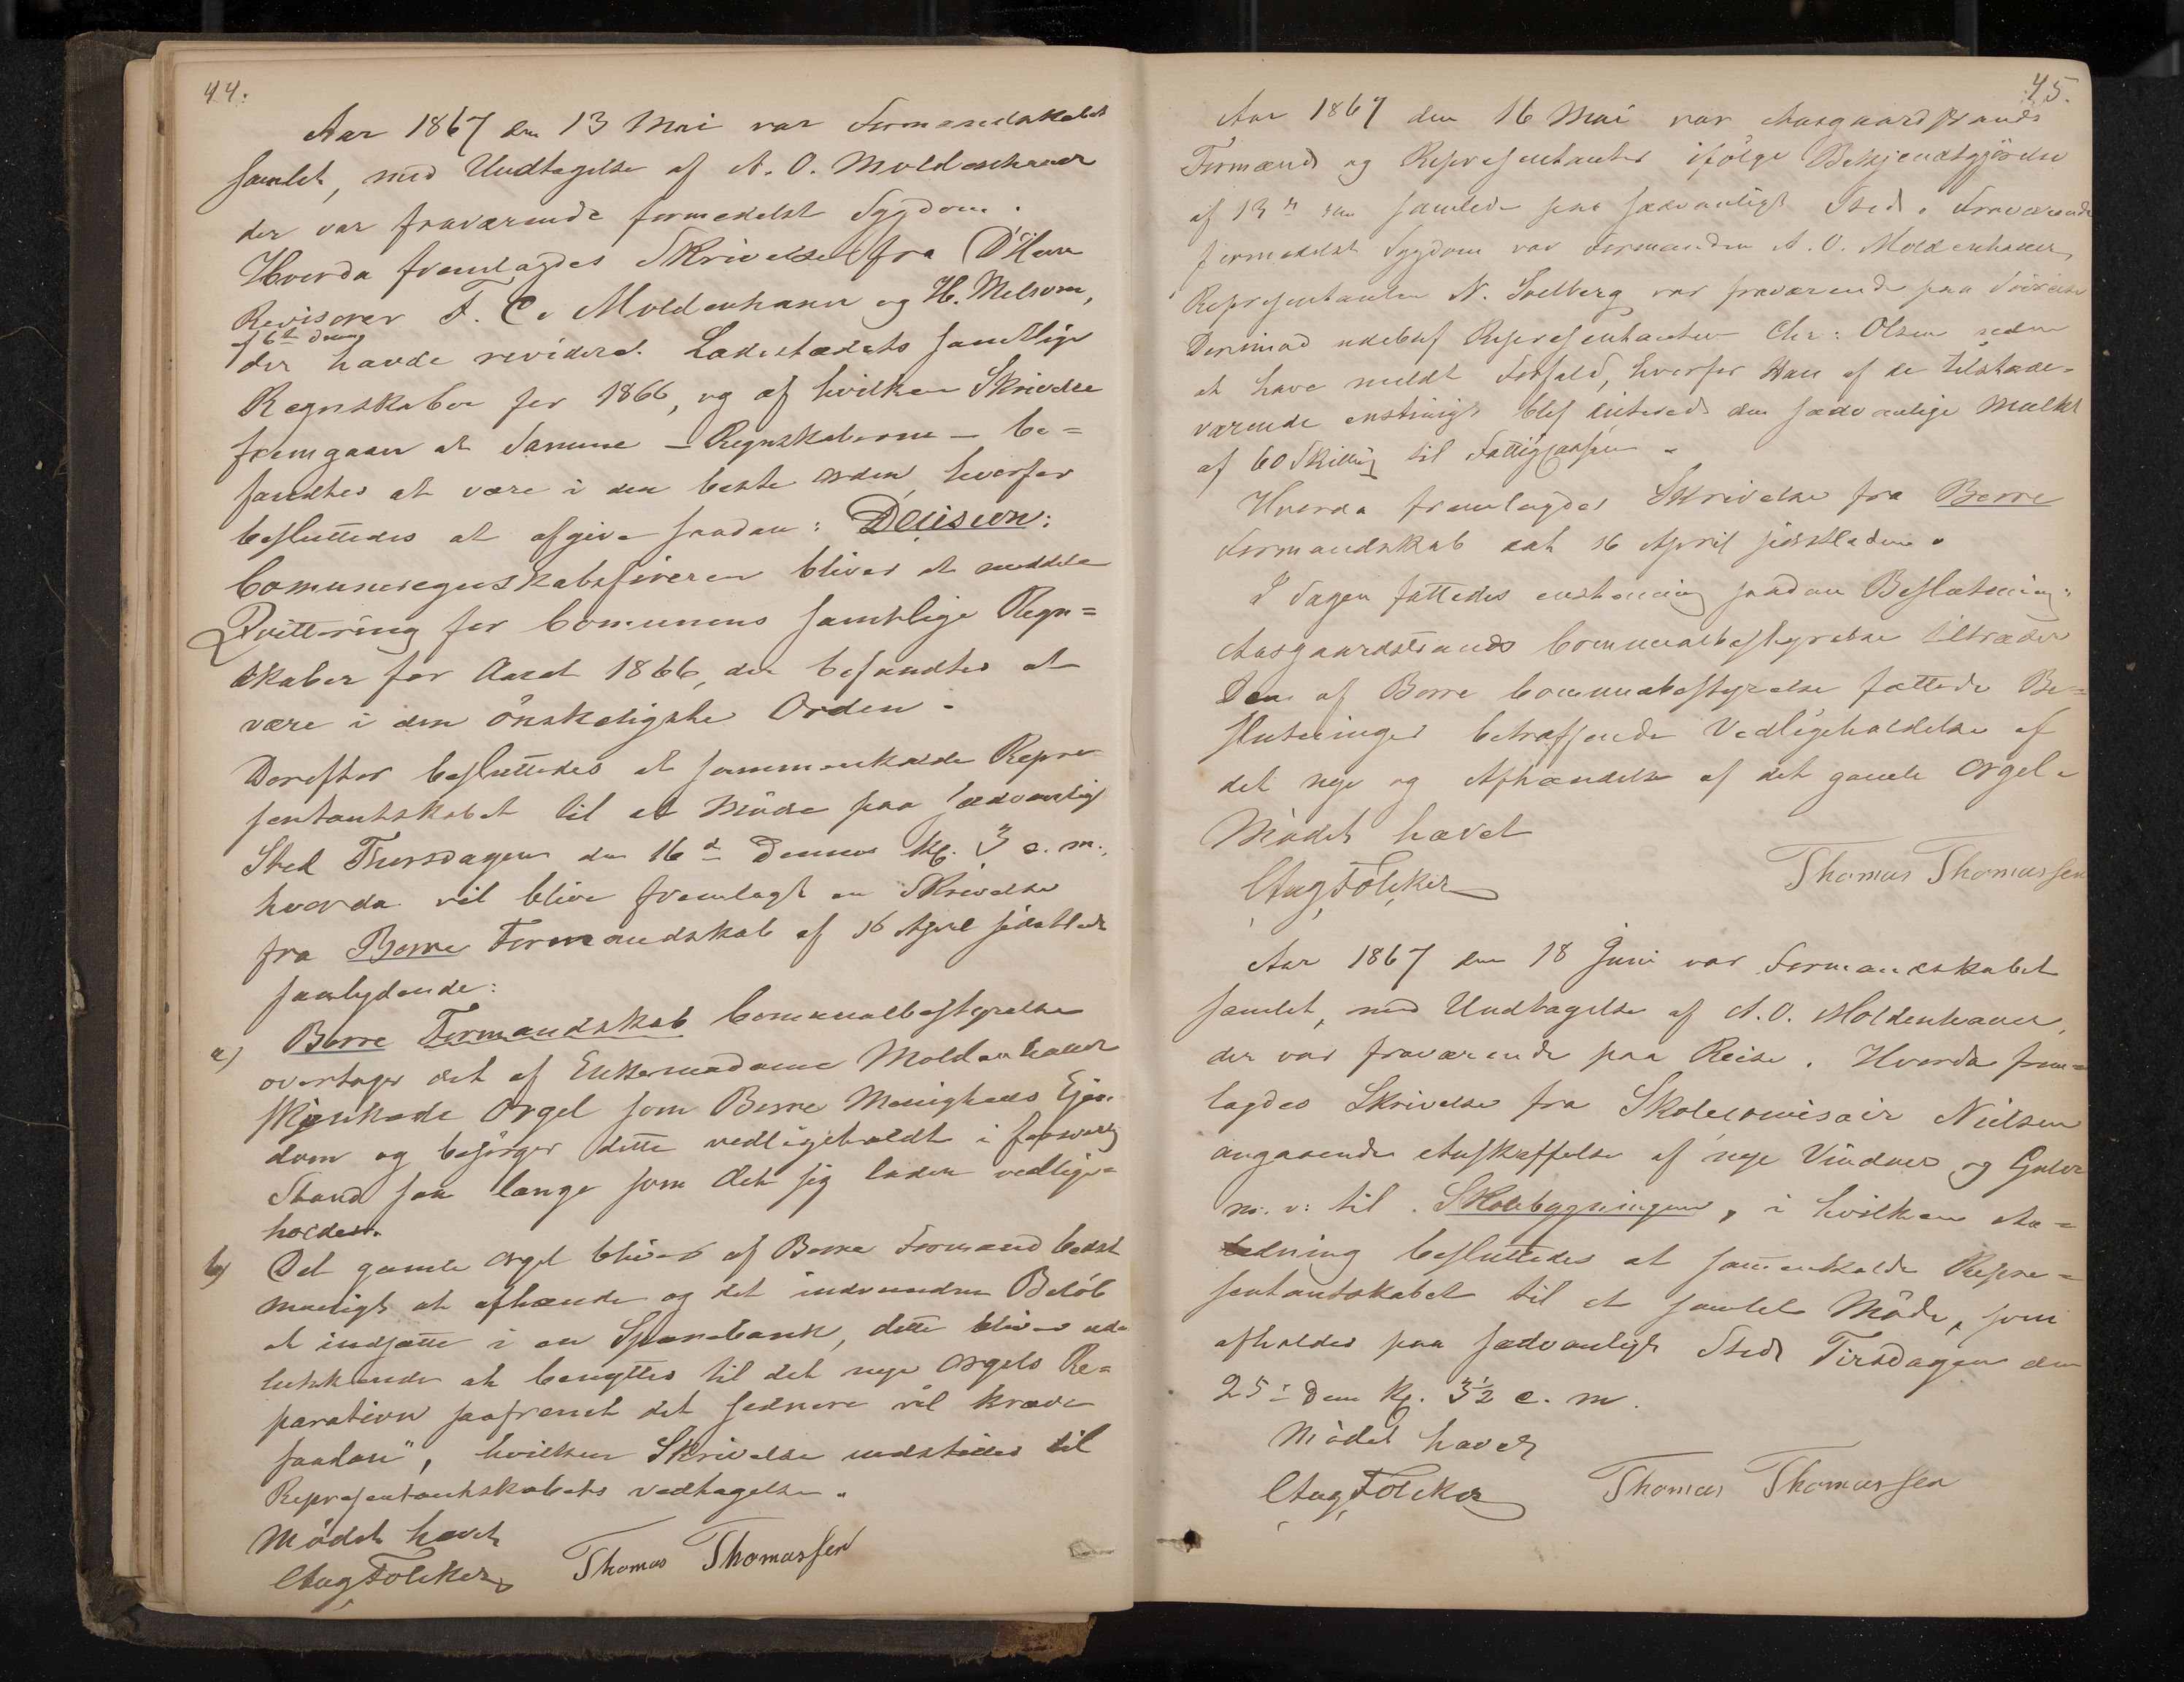 44.
Aar 1867 den 13 Mai var Formandskabet
samlet, med Undtagelse af A. O. Moldenhauer
der var fraværende formedelst Sygdom.
Hvorda fremlagdes Skrivelse fra D'Herr
Revisorer F. C. Moldenhauer og H. Melsom,
af 6te dennes
der havde revideret Ladestædets samtlige
Regnskaber for 1866, og af hvilken Skrivelse
fremgaaer at Samme - Regnskaberne - be=
fandtes at være i den beste Orden, hvorfor
besluttedes at afgive saadan: Decision:
Communeregnskabsføreren bliver at meddele
Qvittering for Communens samtlige Regn=
skaber for Aaret 1866, der befandtes at
være i den ønskeligste Orden.
Derefter besluttedes at sammenkalde Repre
sentantskabet til et Møde paa sædvanligt
Sted Thorsdagen den 16d Dennes Kl. 3 e. m.,
hvorda vil blive fremlagt en Skrivelse
fra Borre Formandskab af 16 April sidstleden
saalydende:
a) Borre Formandskab Comunalbestyrelse
overtager det af Enkemadame Moldenhauer
skjænkede Orgel som Borre Menigheds Ejen
dom og besørger dette vedligeholdt i forsvarlig
Stand saa længe som det sig lader vedlige=
holdes.
b) Det gamle Orgel bliver af Borre Formand bedst
mueligt at afhænde og det indvundne Beløb
at indsætte i en Sparebank, dette bliver ude
lukkende at benyttes til det nye Orgels Re=
paration saafremt det sednere vil kræve
saadan", hvilken Skrivelse indstilles til
Representantskabets vedtagelse.
Mødet hævet
Aug Fölcker Thomas Thomassen
45.
Aar 1867 den 16 Mai var Aasgaardstrands
Formænd og Representanter ifølge Bekjendtgjørelse
af 13de den samlede paa sædvanligt Sted. Fraværende
formedelst Sygdom var Formanden A. O. Moldenhauer,
Representanten N. Solberg var fraværende paa Søreise
Derimod udeblef Representanten Chr: Olsen uden
at have meldt Forfald, hvorfor Han af de tilstæde=
værende enstimigt blef ilitered den sædvanlige Mulkt
af 60 Skilling til Fattigkassen.
Hvorda fremlagdes Skrivelse fra Borre
Formandskab dat 16 April sidstleden.
I Sagen fattedes enstemmig saadan Beslutning:
Aasgaardstrands Communalbestyrelse tiltræder
Den af Borre Communebestyrelse fattede Be=
slutninger betræffende Vedligeholdelse af
det nye og Afhændelse af det gamle Orgel.
Mødet hævet
Aug Fölcker Thomas Thomassen
Aar 1867 den 18 Juni var Formandskabet
samlet, med Undtagelse af A. O. Moldenhauer,
der var fraværende paa Reise. Hvorda frem=
lagdes Skrivelse fra Skolecomisair Nielsen
angaaende Anskaffelse af nye Vinduer og Gulve
m. v: til Skolebygningen, i hvilken An=
ledning besluttedes at sammenkalde Repre=
sentantskabet til et samlet Møde, som
afholdes paa sædvanligt Sted Tirsdagen den
25de Dens Kl. 3½ e. m.
Mødet hævet
Aug Fölcker Thomas Thomassen